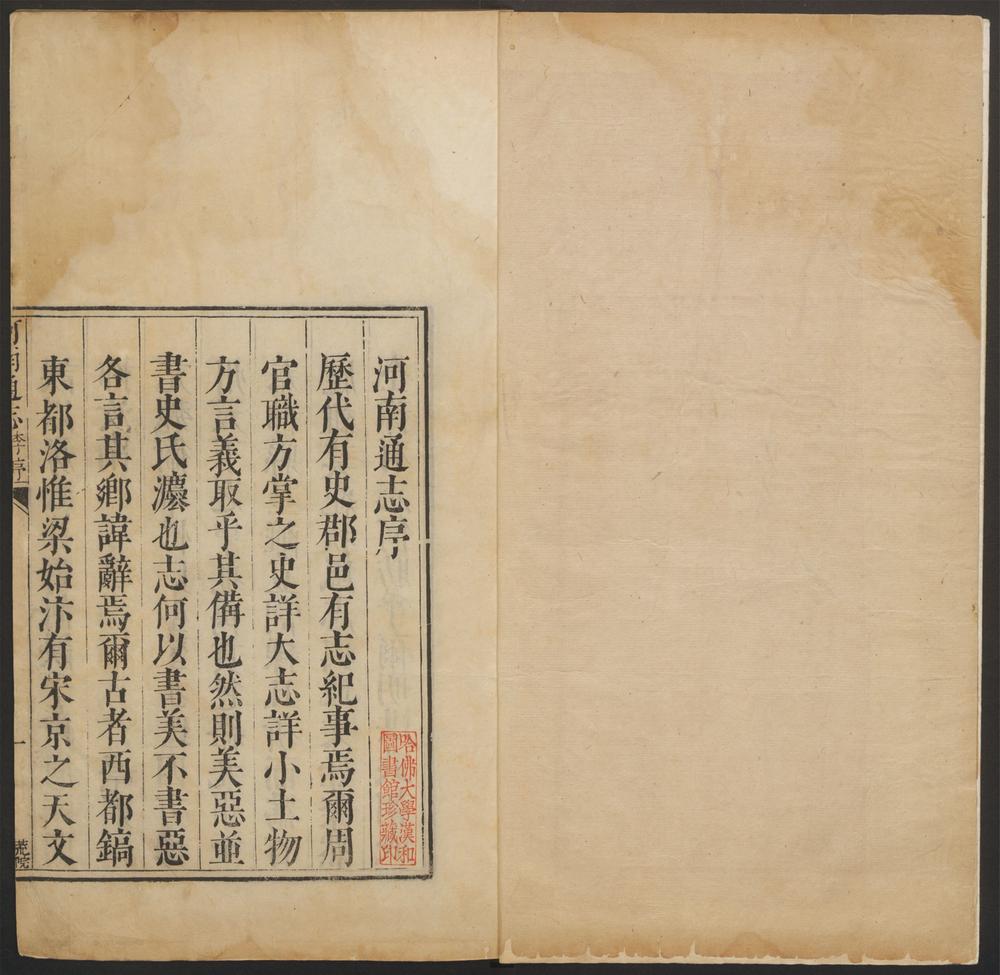 河南通志序
歷代有史郡邑有志紀事焉爾周
官職方掌之史詳大志詳小土物
方言義取乎其備也然則美惡並
書史氏灋也志何以書美不書惡
各言其鄉諱辭焉爾古者西都鎬
東都洛惟梁始汴有宋京之天文
河南通志
李序
一
哈佛大學漢和
圖書館珍藏印